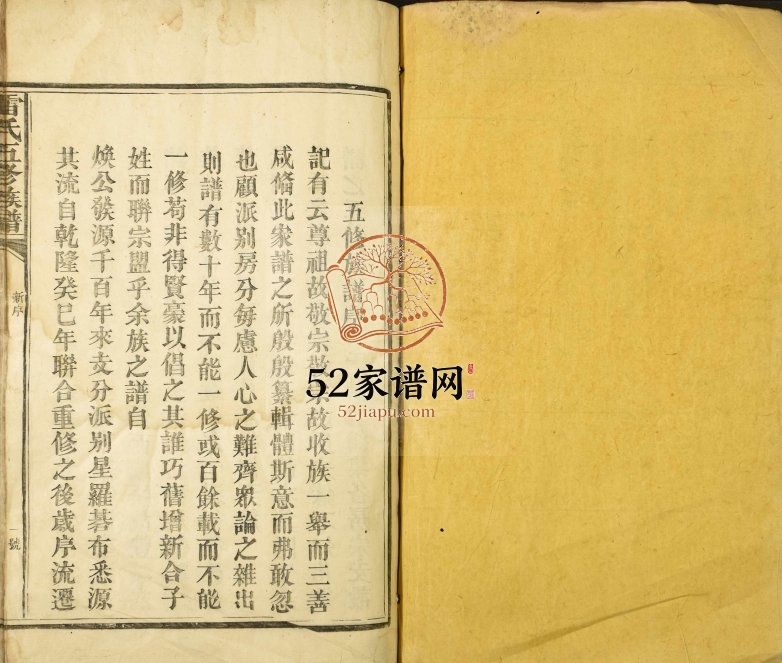 五修族譜序
記有云尊祖故敬宗敬宗故收族一舉而三善
咸備此家譜之所殷殷纂輯體斯意而弗敢忽
也顧派别房分每慮人心之難齊眾論之雜出
則譜有數十年而不能一修或百餘載而不能
一修苟非得賢豪以倡之其誰巧舊增新合子
姓而聯宗盟乎余族之譜自
煥公發源千百年來支分派别星羅碁布悉源
其流自乾隆癸巳年聯合重修之後歲序流遷
雷氏五修族譜
新序
一號
52家谱网
52jiapu.com